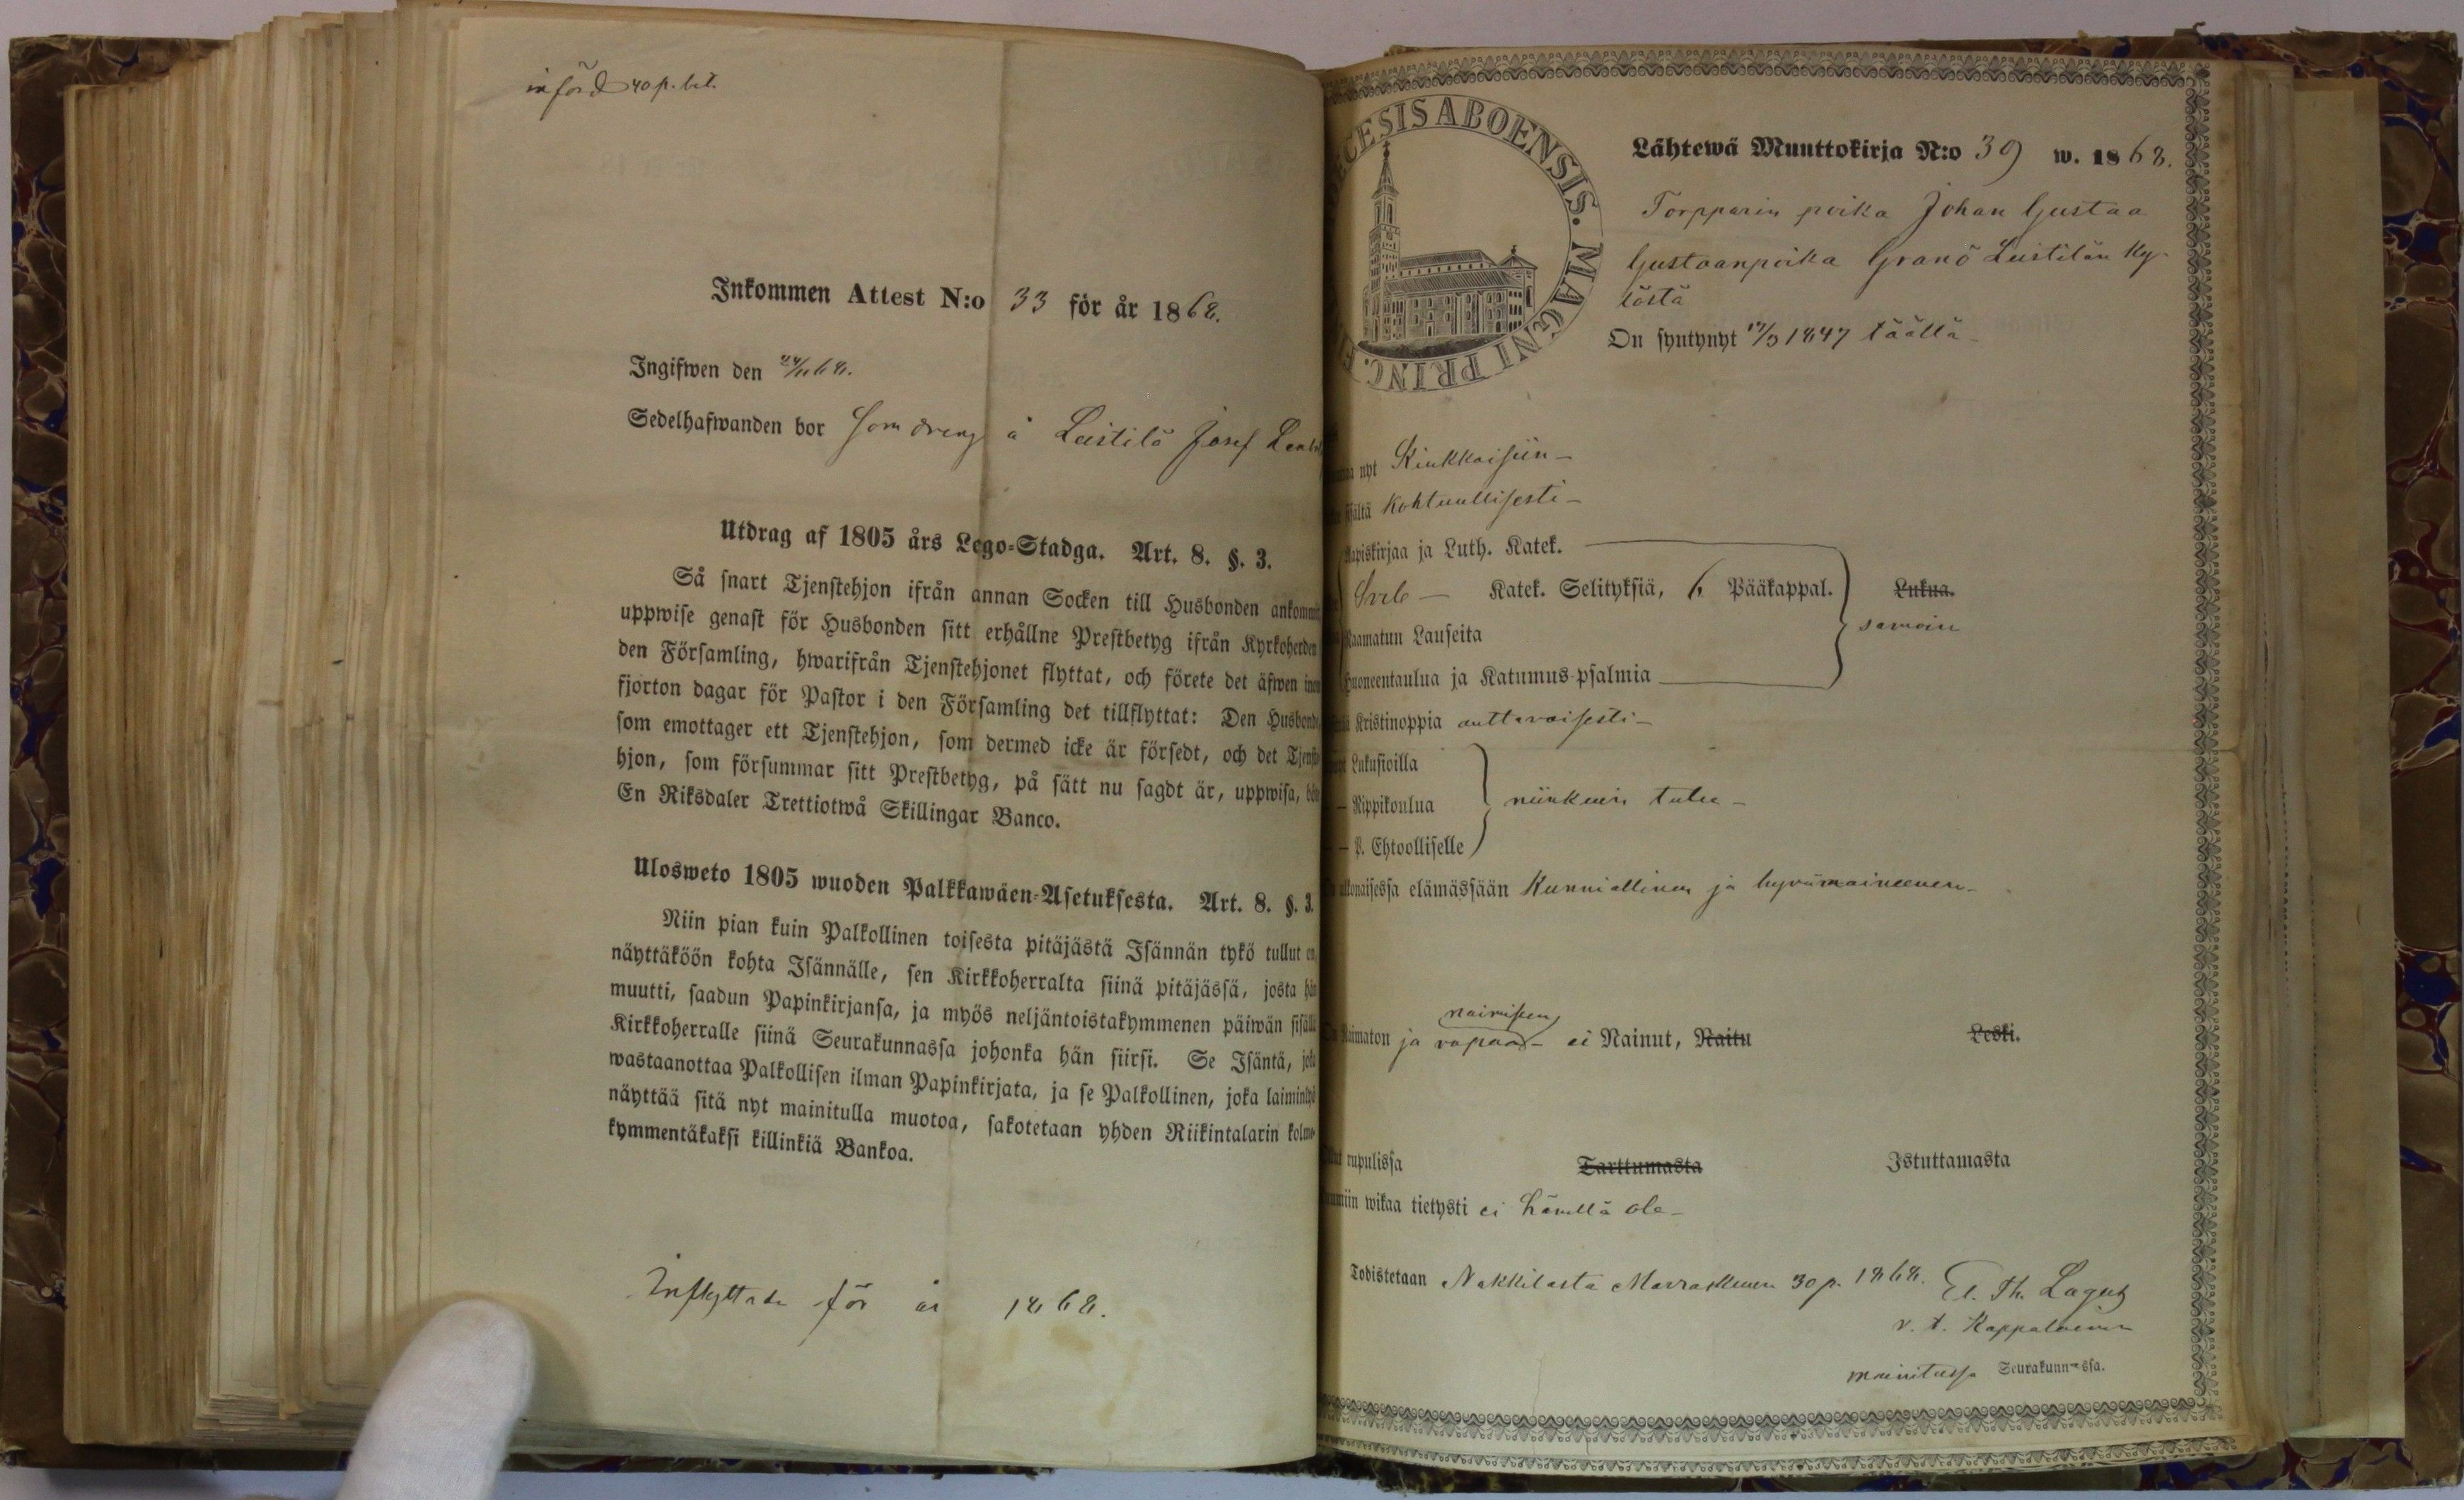 införd 40 p. bet.
Inkommen Attest N:o 33 för år 1868.
Ingifwen den 24/11 68.
Sedelhafwanden bor som dreng å Leistilä Josef
Utdrag af 1805 års Lego-Stadga. Art. 8. §. 3.
Så snart Tjenstehjon ifrån annan Socken till Husbonden ankommit
uppwise genast för Husbonden sitt erhållne Prestbetyg ifrån Kyrkoherden
den Församling, hwarifrån Tjenstehjonet flyttat, och förete det äfwen inom
fjorton dagar för Pastor i den Församling det tillflyttat: Den Husbonde
som emottager ett Tjenstehjon, som dermed icke är försedt, och det Tjenste
hjon, som försummar sitt Prestbetyg, på sätt nu sagdt är, uppwisa, böte
En Riksdaler Trettiotwå Skillingar Banco.
Ulosweto 1805 wuoden Palkkawäen-Asetuksesta. Art. 8. §. 3.
Niin pian kuin Palkollinen toisesta pitäjästä Isännän tykö tullut on,
näyttäköön kohta Isännälle, sen Kirkkoherralta siinä pitäjässä, josta hän
muutti, saadun Papinkirjansa, ja myös neljäntoistakymmenen päiwän sisällä
Kirkkoherralle siinä Seurakunnassa johonka hän siirsi. Se Isäntä, joka
wastaanottaa Palkollisen ilman Papinkirjata, ja se Palkollinen, joka laiminlyö
näyttää sitä nyt mainitulla muotoa, sakotetaan yhden Riikintalarin kolme-
kymmentäkaksi killinkiä Bankoa.
Inflyttade för år 1868.
ECESIS ABOENSIS. MAGNI PRINC.
Lähtewä Muuttokirja N:o 39 w. 1868.
Torpparin poika Johan Gustaa
Gustaanpoika Granö Leistilän ky-
lästä
On syntynyt 17/3 1847 täällä
nyt Kiukkaisiin -
kohtuullisesti -
Aapiskirjaa ja Luth. Katek.
Sveb - Katek. Selityksiä, 6 Pääkappal. Lukua.
samoin
Raamatun Lauseita
Huoneentaulua ja Katumus-psalmia
Kristinoppia auttavaisesti -
Lukusioilla
- Rippikoulua niinkuin tulee -
- P. Ehtoolliselle
ulkonaisessa elämässään Kunniallinen ja hyvämaineenen -
naimiseen
Naimaton ja vapaa - ei Nainut, Naitu Leski.
rupulissa Tarttumasta Istuttamasta
wikaa tietysti ei hänellä ole -
Todistetaan Nakkilasta Marraskuun 30 p. 1868. Th. Lagus
v. t. Kappalainen
mainitussa Seurakunnassa.